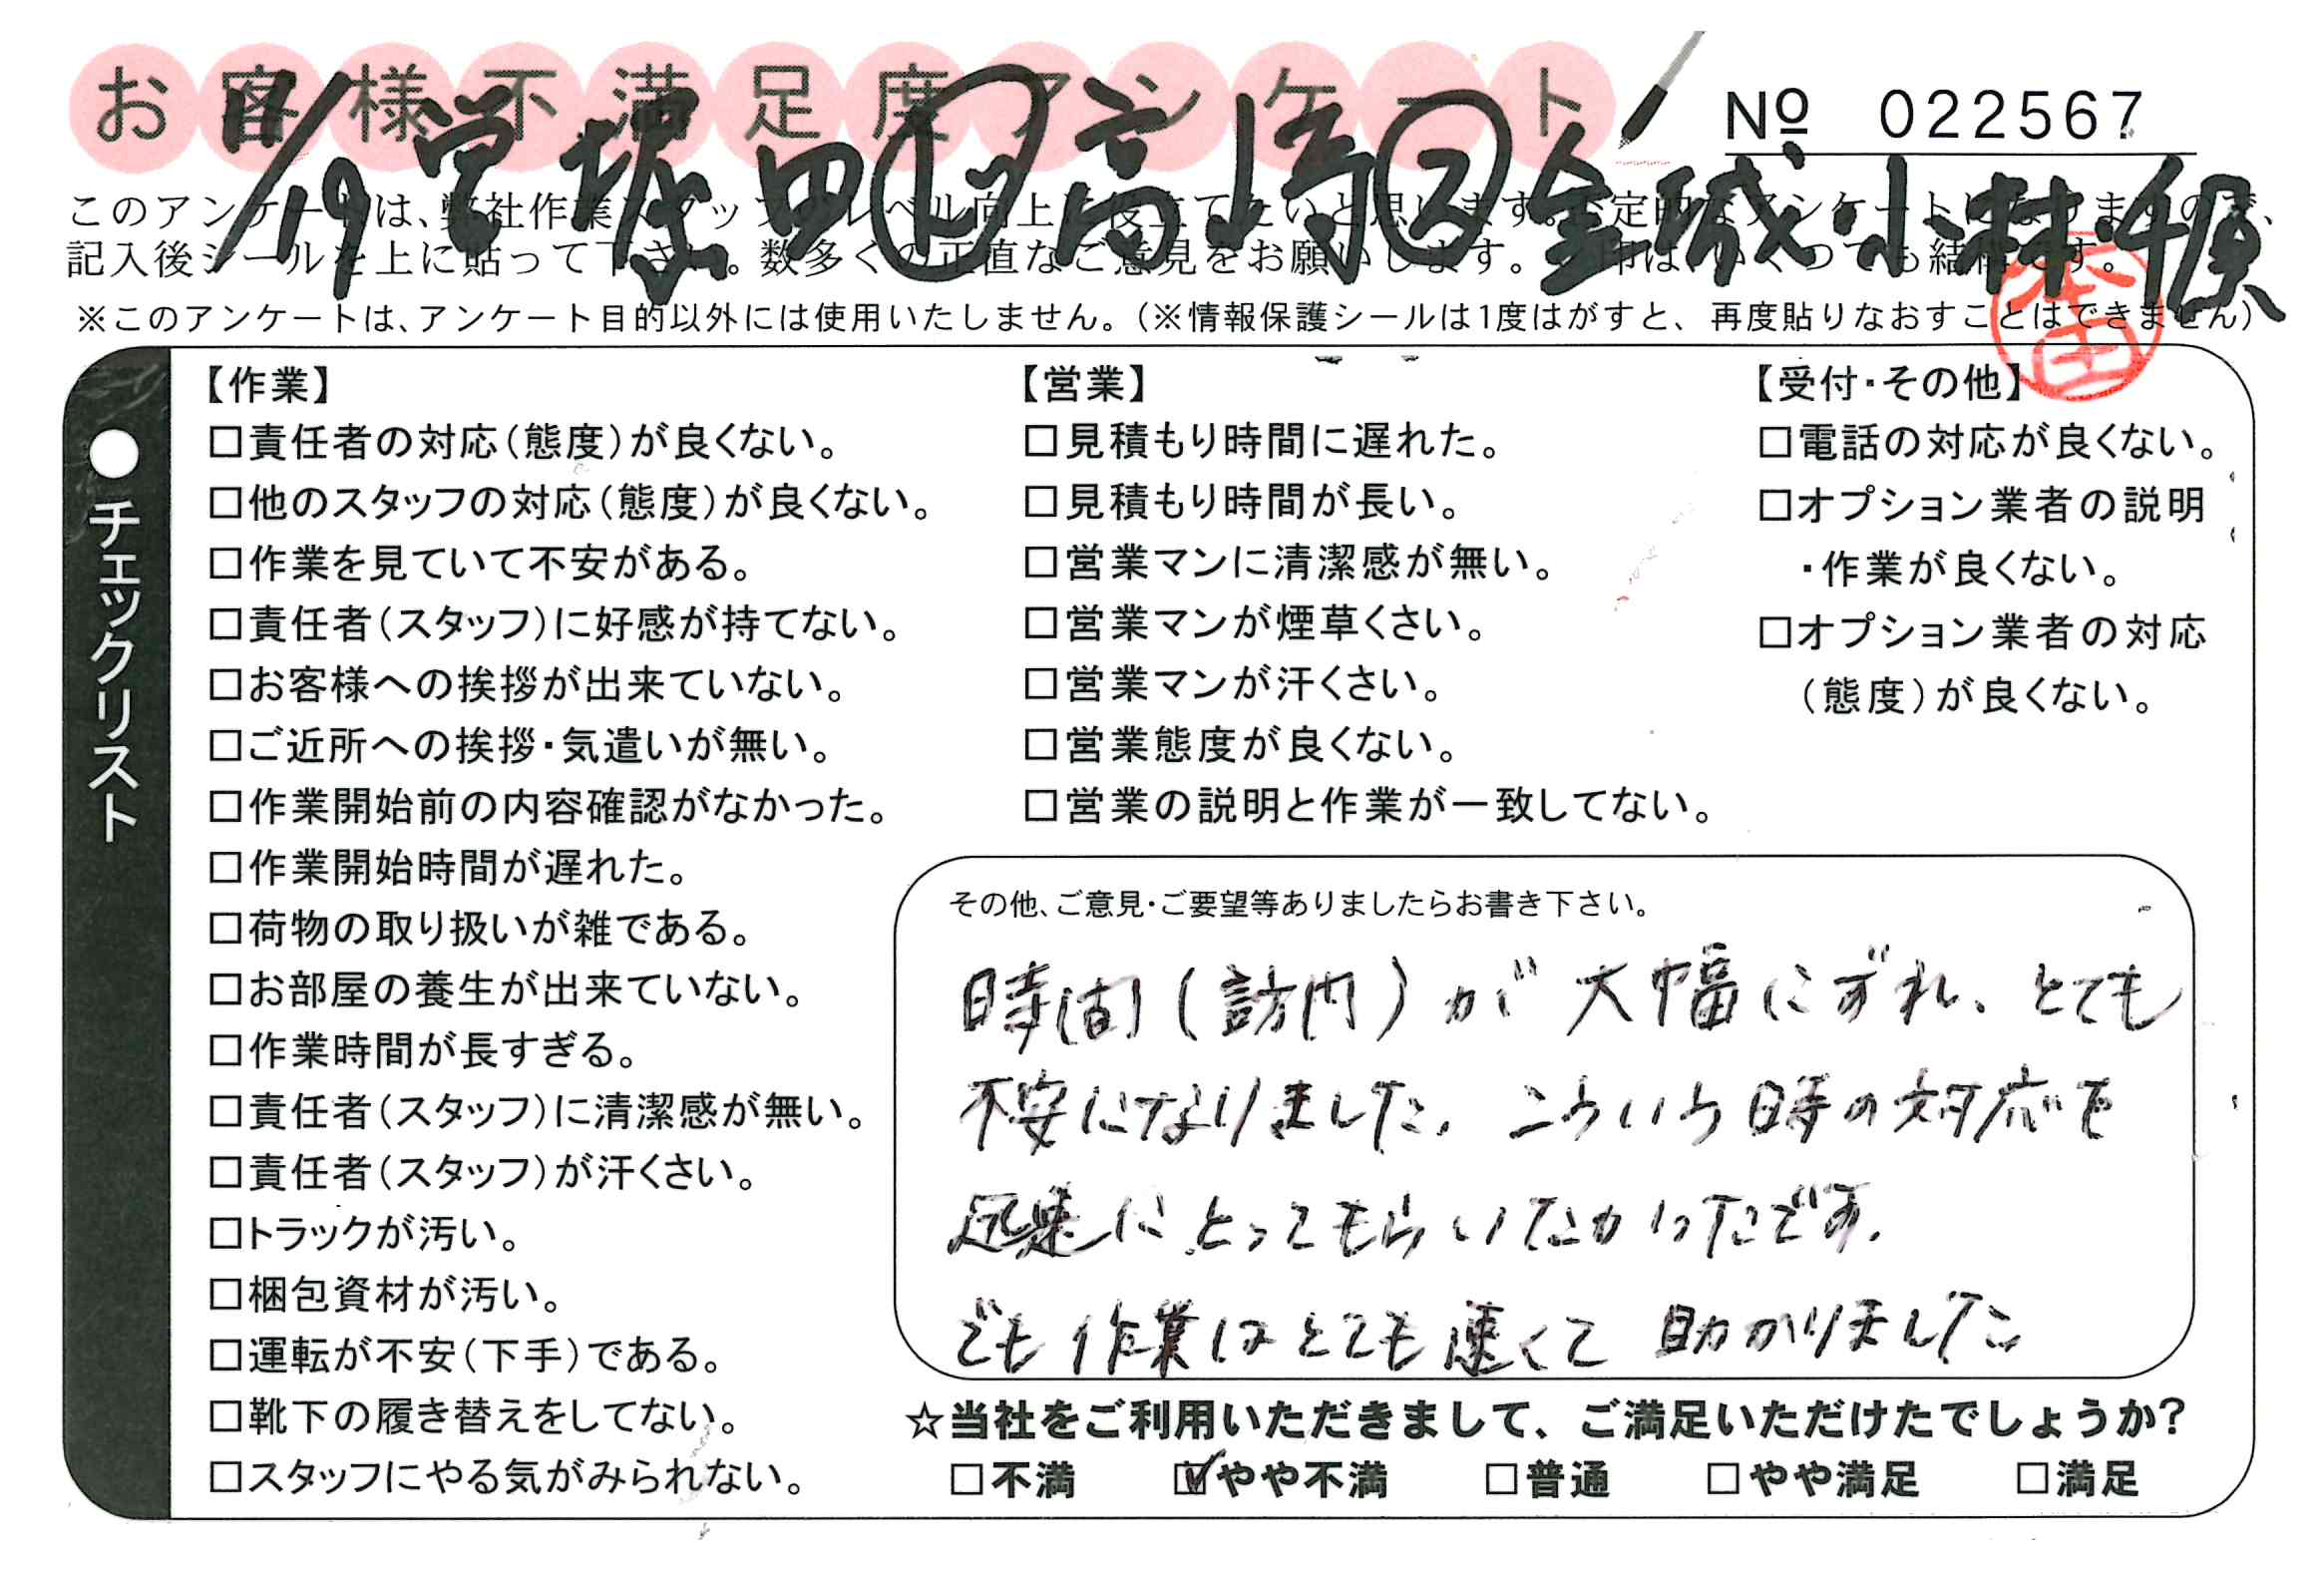 お客様不満足度アンケート
№ 022567
11/19 営 堀田 ト 高崎 ス 金城・小林・
このアンケートは、弊社作業スタッフのレベル向上に役立てたいと思います。否定的なアンケートになりますので、
記入後シールを上に貼って下さい。数多くの正直なご意見をお願いします。 印は、いくつでも結構です。
※このアンケートは、アンケート目的以外には使用いたしません。（※情報保護シールは1度はがすと、再度貼りなおすことはできません）
本田
●チェックリスト
【作業】
□責任者の対応（態度）が良くない。
□他のスタッフの対応（態度）が良くない。
□作業を見ていて不安がある。
□責任者（スタッフ）に好感が持てない。
□お客様への挨拶が出来ていない。
□ご近所への挨拶・気遣いが無い。
□作業開始前の内容確認がなかった。
□作業開始時間が遅れた。
□荷物の取り扱いが雑である。
□お部屋の養生が出来ていない。
□作業時間が長すぎる。
□責任者（スタッフ）に清潔感が無い。
□責任者（スタッフ）が汗くさい。
□トラックが汚い。
□梱包資材が汚い。
□運転が不安（下手）である。
□靴下の履き替えをしてない。
□スタッフにやる気がみられない。
【営業】
□見積もり時間に遅れた。
□見積もり時間が長い。
□営業マンに清潔感が無い。
□営業マンが煙草くさい。
□営業マンが汗くさい。
□営業態度が良くない。
□営業の説明と作業が一致してない。
【受付・その他】
□電話の対応が良くない。
□オプション業者の説明
・作業が良くない。
□オプション業者の対応
（態度）が良くない。
その他、ご意見・ご要望等ありましたらお書き下さい。
時間（訪問）が大幅にずれ、とても
不安になりました。こういう時の対応を
迅速にとってもらいたかったです。
でも作業はとても速くて助かりました
☆当社をご利用いただきまして、ご満足いただけたでしょうか？
□不満 ☑やや不満 □普通 □やや満足 □満足